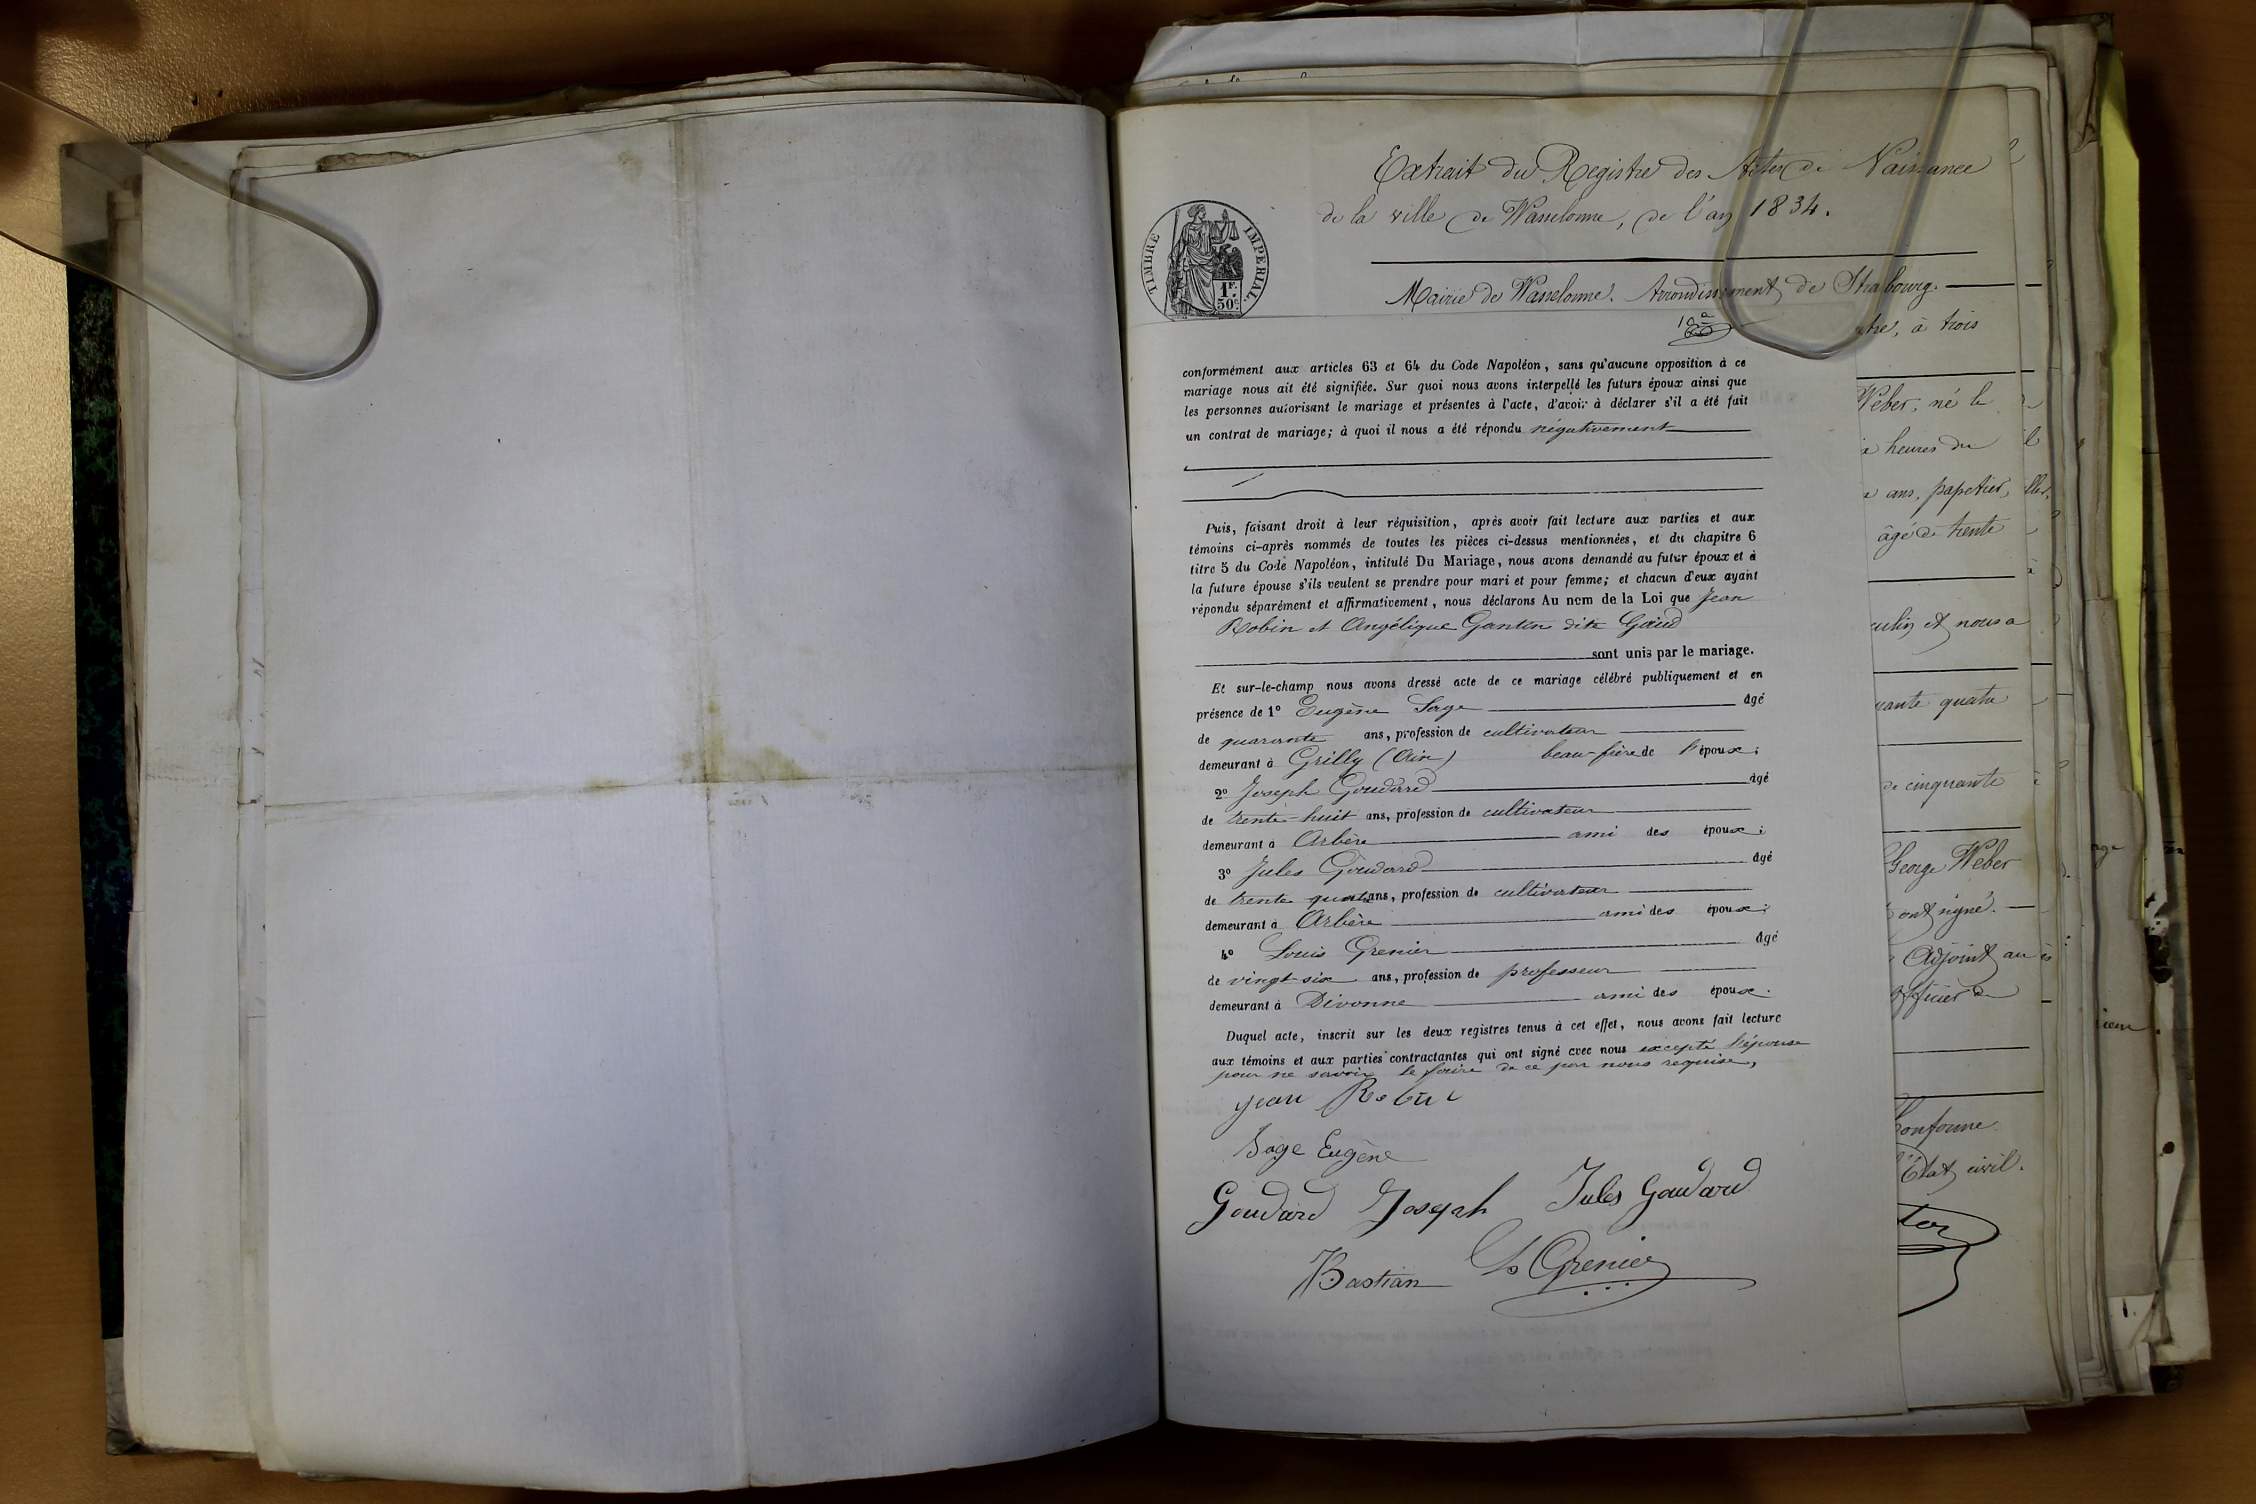 Extrait du Registre des Actes de Naissance
de la ville de Wasselonne, de l'an 1834.
TIMBRE IMPERIAL
1F.
50c.
Mairie de Wasselonne. Arrondissement de Strasbourg.
conformément aux articles 63 et 64 du Code Napoléon, sans qu'aucune opposition à ce
mariage nous ait été signifiée. Sur quoi nous avons interpellé les futurs époux ainsi que
les personnes autorisant le mariage et présentes à l'acte, d'avoir à déclarer s'il a été fait
un contrat de mariage; à quoi il nous a été répondu négativement
Puis, faisant droit à leur réquisition, après avoir fait lecture aux parties et aux
témoins ci-après nommés de toutes les pièces ci-dessus mentionnées, et du chapitre 6
titre 5 du Code Napoléon, intitulé Du Mariage, nous avons demandé au futur époux et à
la future épouse s'ils veulent se prendre pour mari et pour femme; et chacun d'eux ayant
répondu séparément et affirmativement, nous déclarons Au nom de la Loi que Jean
Robin et Angélique Gantin dite Gaud
sont unis par le mariage.
Et sur-le-champ nous avons dressé acte de ce mariage célébré publiquement et en
présence de 1° Eugène Sage âgé
de quarante ans, profession de cultivateur
demeurant à Grilly (Ain) beau-frère de l'époux;
2° Joseph Goudard âgé
de trente-huit ans, profession de cultivateur
demeurant à Arbère ami des époux;
3° Jules Goudard âgé
de trente quatre ans, profession de cultivateur
demeurant à Arbère ami des époux;
4° Louis Grenier âgé
de vingt-six ans, profession de professeur
demeurant à Divonne ami des époux.
Duquel acte, inscrit sur les deux registres tenus à cet effet, nous avons fait lecture
aux témoins et aux parties contractantes qui ont signé avec nous excepté l'épouse
pour ne savoir le faire de ce par nous requise,
Jean Robin
Sage Eugène
Goudard Joseph Jules Goudard
Bastian Ls Grenier
à trois
Weber, né le
heures du
ans, papetier,
âgé de trente
et nous a
quatre
de cinquante
George Weber
ont signé.
Adjoint au
officier de
Conforme
l'Etat civil.